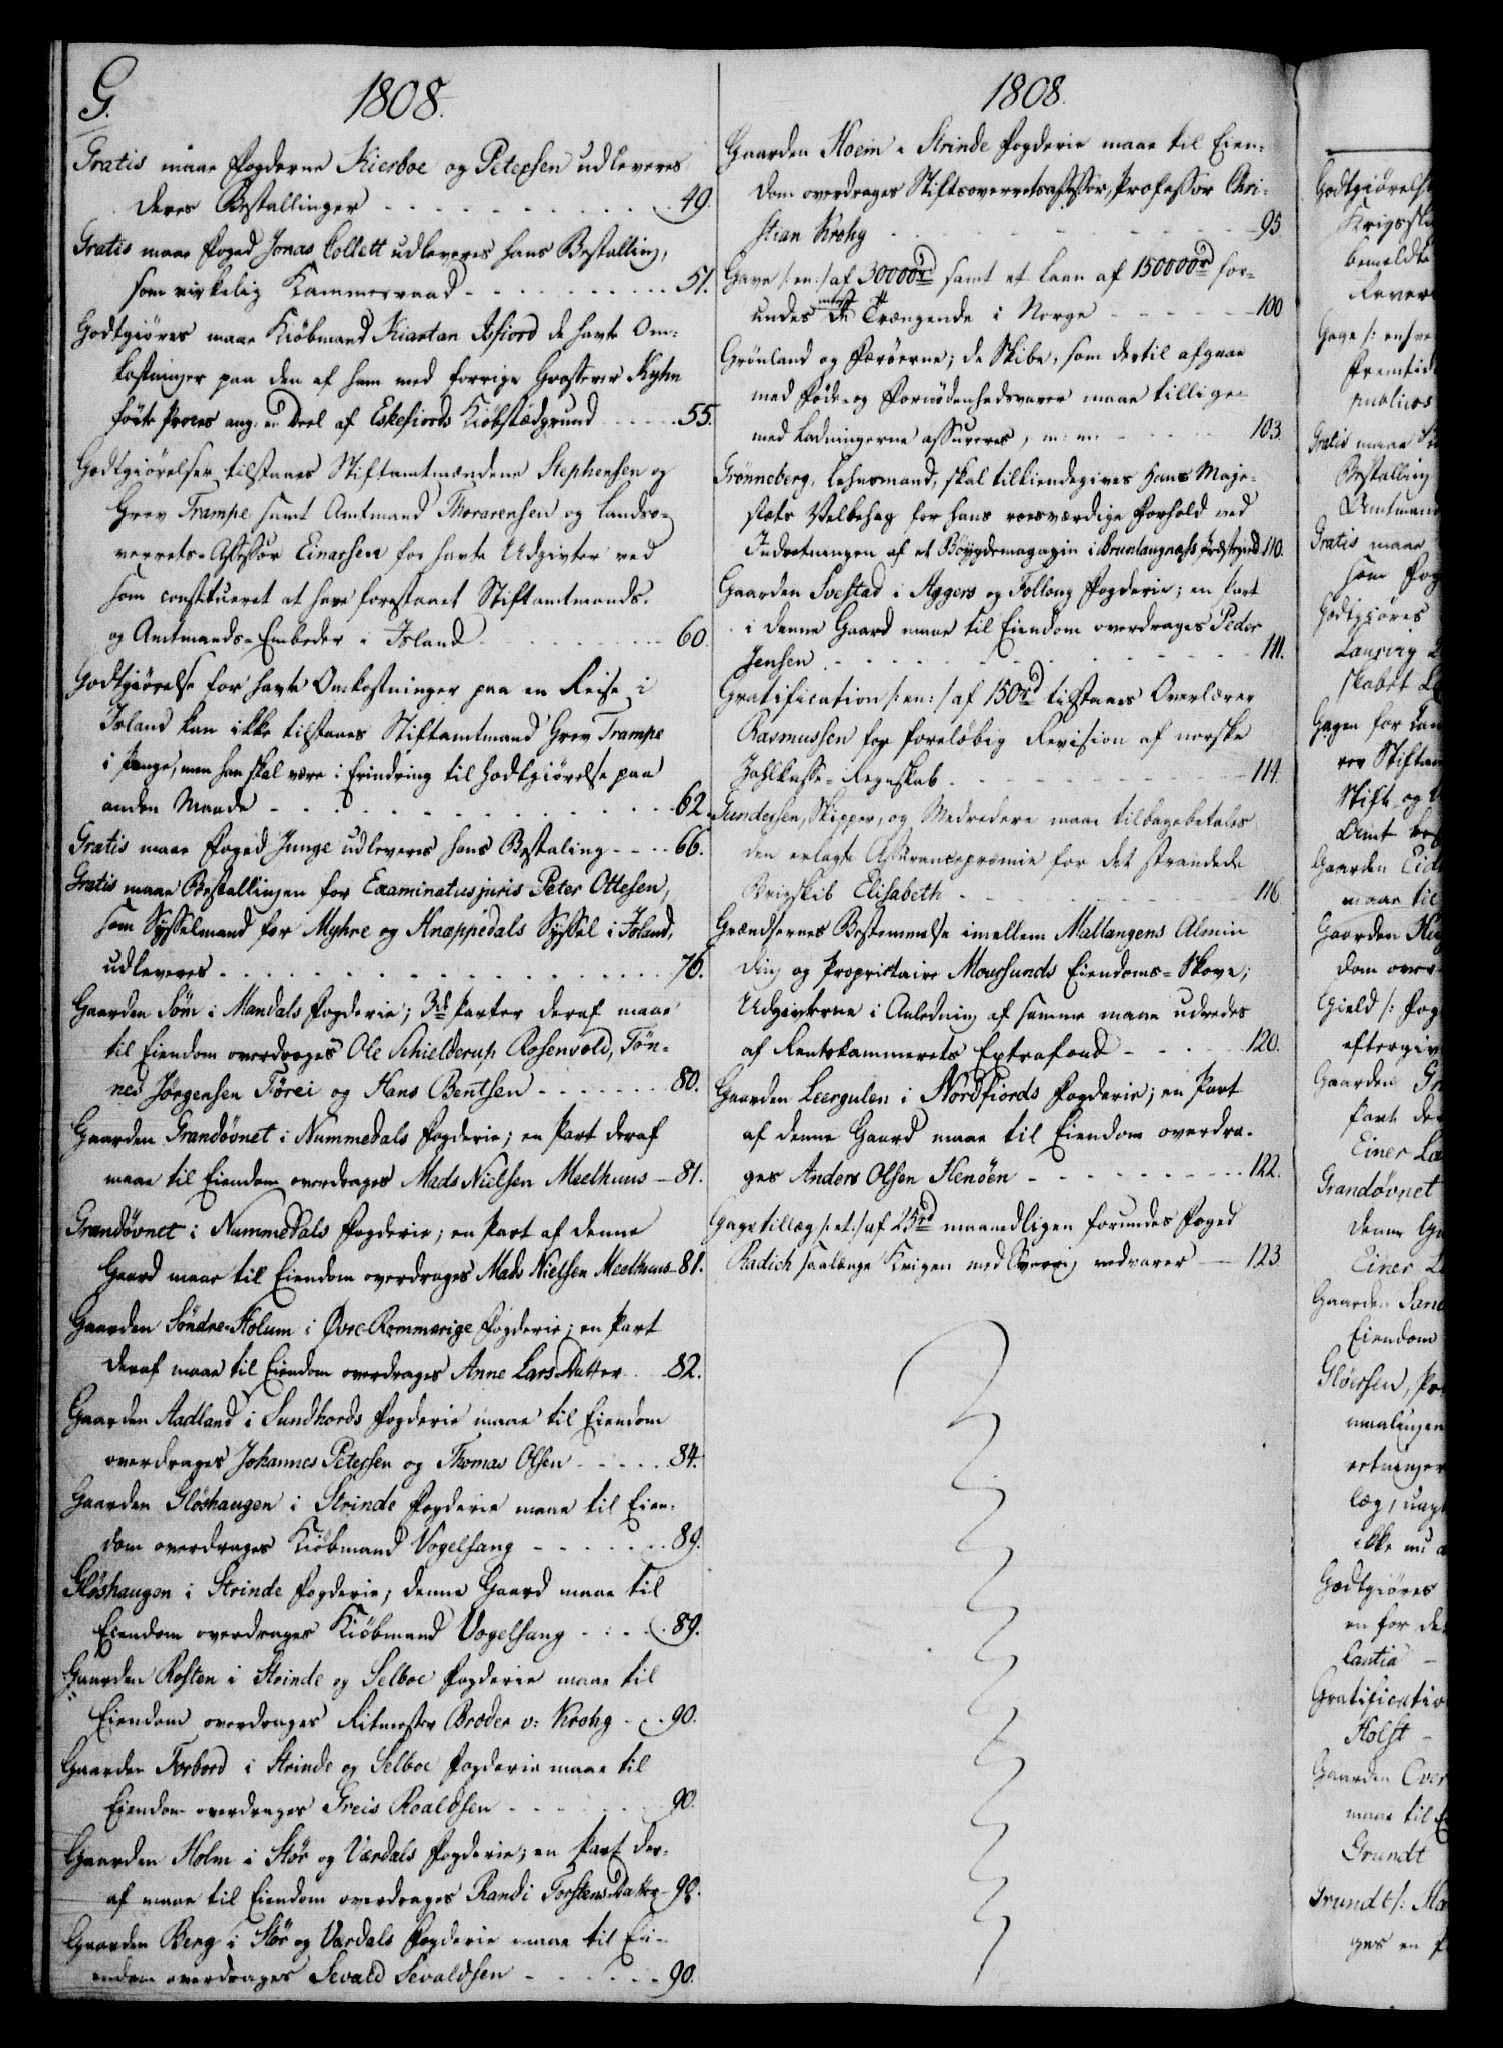 G.
1808.
Gratis maae Fogderne Kierboe og Petersen udleveres
deres Bestallinger - - - 49.
Gratis maae Foged Jonas Collett udleveres hans Bestalling,
som virkelig Kammerraad - - - 51.
Godtgiöres maae Kiöbmand Kiartan Isfiord de havte Om-
kostninger paa den af ham med forrige Grosserer Kyhn
förte Proces ang. en Deel af Eskefiords Kiöbstædgrund - - - 55.
Godtgiörelser tilstaaes Stiftamtmændene Stephensen og
Grev Trampe samt Amtmand Thorarensen og Landso-
verrets-Assessor Einarsen for havte Udgivter ved
som constitueret at have forestaaet Stiftamtmands-
og Amtmands-Embeder i Island - - - 60.
Godtgiörelse for havte Omkostninger paa en Reise i
Island kan ikke tilstaaes Stiftamtmand Grev Trampe
i Penge, men han skal være i Erindring til Godtgiörelse paa
anden Maade - - - 62.
Gratis maae Foged Junge udleveres hans Bestaling - - - 66.
Gratis maae Bestallingen for Examinatus juris Peter Ottesen,
som Sysselmand for Myhre og Knappedals Syssel i Island,
udleveres - - - 76.
Gaarden Söm i Mandals Fogderie; 3de Parter deraf maae
til Eiendom overdrages Ole Schielderup Rosenvold, Tön-
nes Jörgensen Törei og Hans Bentsen - - - 80.
Gaarden Grandöonet i Nummedals Fogderie; en Part deraf
maae til Eiendom overdrages Mads Nielsen Meelhuus - 81.
Grandöonet i Nummedals Fogderie; en Part af denne
Gaard maae til Eiendom overdrages Mads Nielsen Meelhuus - 81.
Gaarden Söndre-Holum i Övre-Rommerige Fogderie; en Part
deraf maae til Eiendom overdrages Anne Lars Datter - - 82.
Gaarden Aadland i Sundhords Fogderie maae til Eiendom
overdrages Johannes Petersen og Thomas Olsen - - - 84.
Gaarden Glöshaugen i Strinde Fogderie maae til Eien-
dom overdrages Kiöbmand Vogelsang - - - 89.
Glöshaugen i Strinde Fogderie; denne Gaard maae til
Eiendom overdrages Kiöbmand Vogelsang - - - 89.
Gaarden Rosten i Strinde og Selboe Fogderie maae til
Eiendom overdrages Ritmester Broder v: Krohg - - 90.
Gaarden Forbord i Strinde og Selboe Fogderie maae til
Eiendom overdrages Greis Roaldsen - - - 90.
Gaarden Holm i Stör og Værdals Fogderie; en Part der-
af maae til Eiendom overdrages Randi Torstens Datter - 90.
Gaarden Berg i Stör og Værdals Fogderie maae til Ei-
endom overdrages Sevald Sevaldsen - - - 90.
1808.
Gaarden Hoem i Strinde Fogderie maae til Eien-
dom overdrages Stiftsoverretsassessor, Professor Chri-
stian Krohg - - - 95
Gave /: en :/ af 30000rd samt et Laan af 150000rd for-
undes de meest Trængende i Norge - - - 100
Grönland og Færöerne; de Skibe, som dertil afgaae
med Föde- og Fornödenhedsvarer maae tillige-
med Ladningerne assureres, m: m: - - - 103.
Grönneberg, Lehnsmand, skal tilkiendegives Hans Maje-
stæts Velbehag for hans roesværdige Forhold ved
Indretningen af et Böygdemagazin i Brunlaugnæss Præstegield 110.
Gaarden Svestad i Aggers og Follong Fogderie; en Part
i denne Gaard maae til Eiendom overdrages Peder
Jensen - - - 111.
Gratification /: en :/ af 150rd tilstaaes Overlærer
Rasmussen for foreløbig Revision af norske
Zahlkasse-Regnskab - - - 114.
Gundersen, Skipper, og Medredere maae tilbagebetales
den erlagte Assurancepræmie for det strandede
Brigskib Elisabeth - - - 116
Grændsernes Bestemmelse imellem Mallangens Almin
ding og Proprietaire Moursunds Eiendoms-Skove;
Udgivterne i Anledning af samme maae udredes
af Rentekammerets Extrafond - - - 120.
Gaarden Leergulen i Nordfiords Fogderie; en Part
af denne Gaard maae til Eiendom overdra-
ges Anders Olsen Henöen - - - 122.
Gagetillæg /: et :/ af 25rd maanedligen forundes Foged
Radich saalænge Krigen med Sverrig vedvarer - 123
Godtgiörelse
Krigssk
bemeldte
Rever
Gage /: enhve
Fremtid
publices
Gratis maae
Bestalling
Amtmand
Gratis maae
som Fog
Godtgiöres
Laurvig
skabet
Gagen for
rer Stiftam
Stift og
Amt
Gaarden Eid
maae til
Gaarden
dom over
Gield /: Fog
eftergiv
Gaarden Gr
Part der
Einer La
Grandövnet
denne Ga
Einer L
Gaarden San
Eiendom
Glöersen, Pr
maalingen
retninger
læg, uagt
ikke nu
Godtgiöres
en for de
Cautia
Gratificatio
Holst
Gaarden Over
maae til E
Grundt
Grundt /: Ma
ges en P